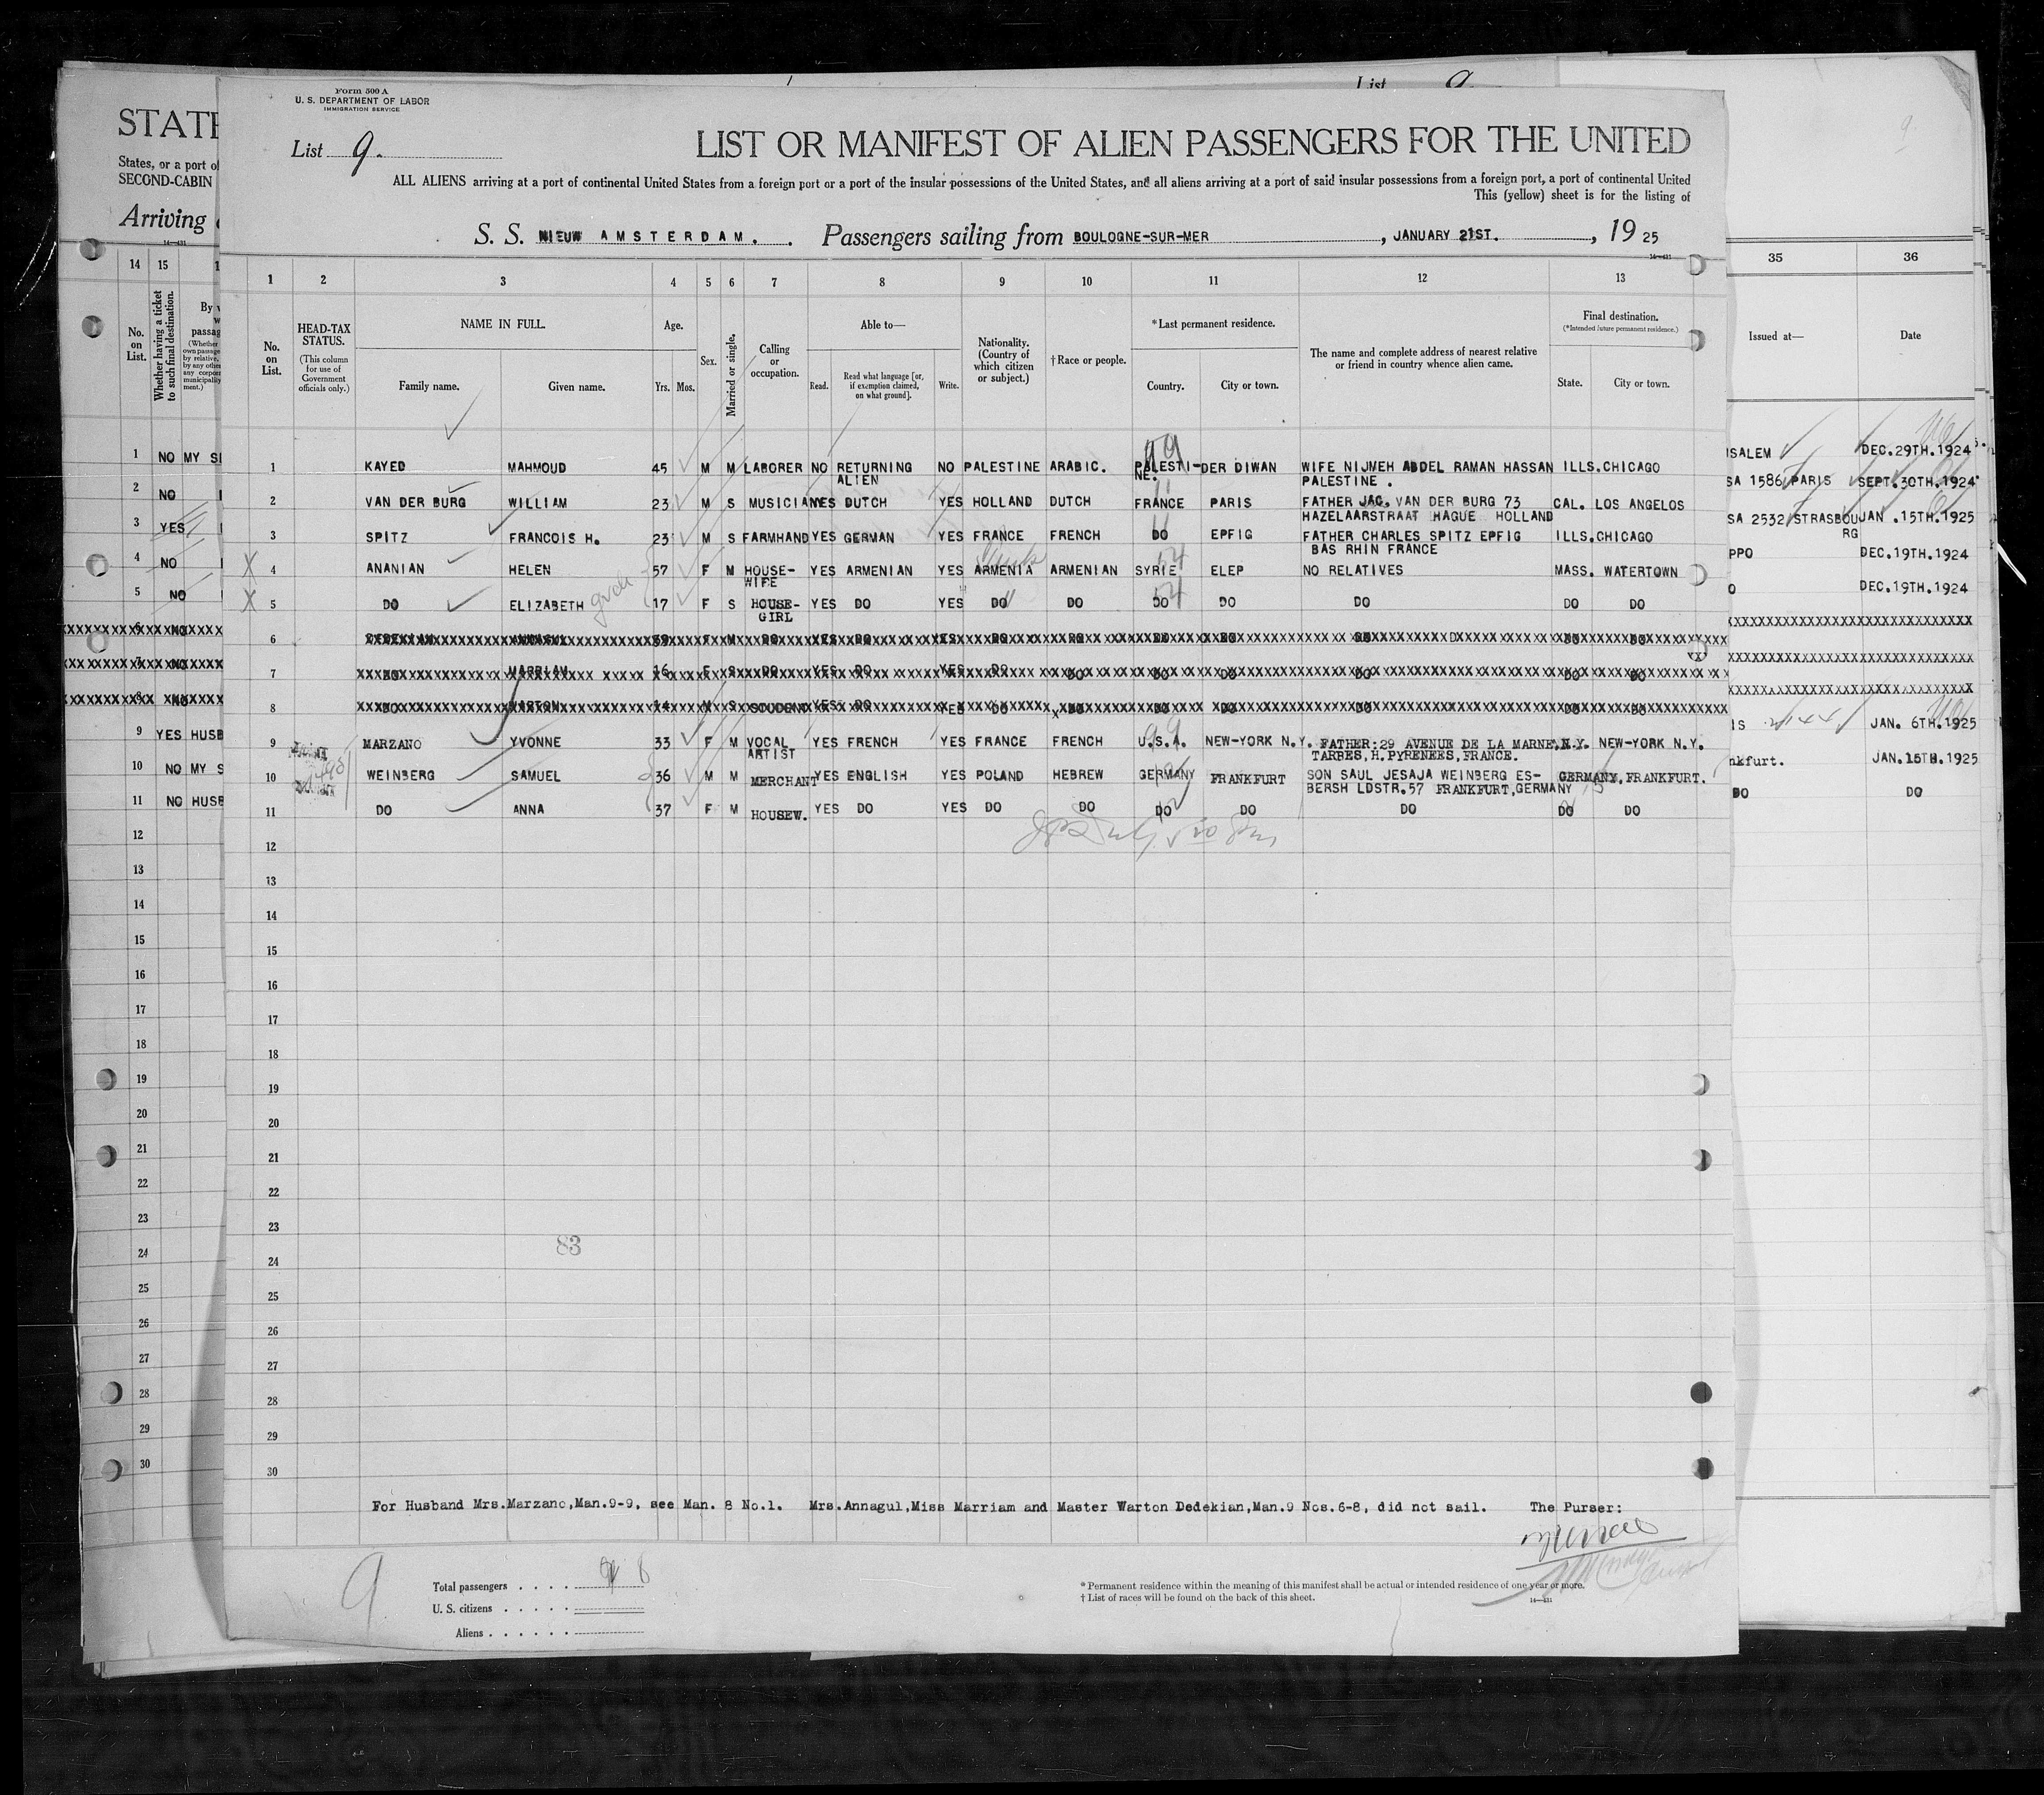 Form 500 A
U. S. DEPARTMENT OF LABOR
IMMIGRATION SERVICE
List 9.
LIST OR MANIFEST OF ALIEN PASSENGERS FOR THE UNITED
ALL ALIENS arriving at a port of continental United States from a foreign port or a port of the insular possessions of the United States, and all aliens arriving at a port of said insular possessions from a foreign port, a port of continental United
This (yellow) sheet is for the listing of
S. S. NIEUW AMSTERDAM. Passengers sailing from BOULOGNE-SUR-MER, JANUARY 21ST., 19 25
1 2 3 4 5 6 7 8 9 10 11 12 13
No. on List.
HEAD-TAX STATUS.
(This column for use of Government officials only.)
NAME IN FULL.
Family name. Given name.
Age.
Yrs. Mos.
Sex.
Married or single.
Calling or occupation.
Able to—
Read. Read what language [or, if exemption claimed, on what ground]. Write.
Nationality. (Country of which citizen or subject.)
†Race or people.
*Last permanent residence.
Country. City or town.
The name and complete address of nearest relative or friend in country whence alien came.
Final destination.
(*Intended future permanent residence.)
State. City or town.
1 KAYED MAHMOUD 45 M M LABORER NO RETURNING ALIEN NO PALESTINE ARABIC. PALESTINE. DER DIWAN WIFE NIJMEH ABDEL RAMAN HASSAN PALESTINE . ILLS. CHICAGO
2 VAN DER BURG WILLIAM 23 M S MUSICIAN YES DUTCH YES HOLLAND DUTCH FRANCE PARIS FATHER JAC. VAN DER BURG 73 HAZELAARSTRAAT HAGUE HOLLAND CAL. LOS ANGELOS
3 SPITZ FRANCOIS H. 23 M S FARMHAND YES GERMAN YES FRANCE FRENCH DO EPFIG FATHER CHARLES SPITZ EPFIG BAS RHIN FRANCE ILLS. CHICAGO
4 ANANIAN HELEN 57 F M HOUSE-WIFE YES ARMENIAN YES ARMENIA ARMENIAN SYRIE ELEP NO RELATIVES MASS. WATERTOWN
5 DO ELIZABETH 17 F S HOUSE-GIRL YES DO YES DO DO DO DO DO DO DO
6 DEDEKIAN ANNAGUL 39 F M DO YES DO YES DO DO DO DO DO DO DO
7 DO MARRIAM 16 F S DO YES DO YES DO DO DO DO DO DO DO
8 DO WARTON 14 M S STUDENT YES DO YES DO DO DO DO DO DO DO
9 MARZANO YVONNE 33 F M VOCAL ARTIST YES FRENCH YES FRANCE FRENCH U.S.A. NEW-YORK N.Y. FATHER:29 AVENUE DE LA MARNE, TARBES,H.PYRENEES,FRANCE. N.Y. NEW-YORK N.Y.
10 WEINBERG SAMUEL 36 M M MERCHANT YES ENGLISH YES POLAND HEBREW GERMANY FRANKFURT SON SAUL JESAJA WEINBERG ES-BERSH LDSTR.57 FRANKFURT,GERMANY GERMANY, FRANKFURT.
11 DO ANNA 37 F M HOUSEW. YES DO YES DO DO DO DO DO DO DO
12
13
14
15
16
17
18
19
20
21
22
23
83
24
25
26
27
28
29
30
For Husband Mrs.Marzano,Man.9-9, see Man. 8 No.1. Mrs.Annagul,Miss Marriam and Master Warton Dedekian,Man.9 Nos.6-8, did not sail. The Purser:
9
Total passengers . . . . 8
U. S. citizens . . . . .
Aliens . . . . . .
* Permanent residence within the meaning of this manifest shall be actual or intended residence of one year or more.
† List of races will be found on the back of this sheet.
14—431
STATE
States, or a port of
SECOND-CABIN
Arriving
14—431
14 15
No. on List.
Whether having a ticket to such final destination.
1 NO MY SI
2 NO
3 YES
4 NO
5 NO
6 NO
7 NO
8 NO
9 YES HUSB
10 NO MY S
11 NO HUSB
12
13
14
15
16
17
18
19
20
21
22
23
24
25
26
27
28
29
30
List 9
9
35 36
Issued at— Date
SALEM DEC.29TH.1924
SA 1586 PARIS SEPT.30TH.1924
SA 2532 STRASBOURG JAN .15TH.1925
PPO DEC.19TH.1924
O DEC.19TH.1924
IS JAN. 6TH.1925
nkfurt. JAN.15TH.1925
DO DO